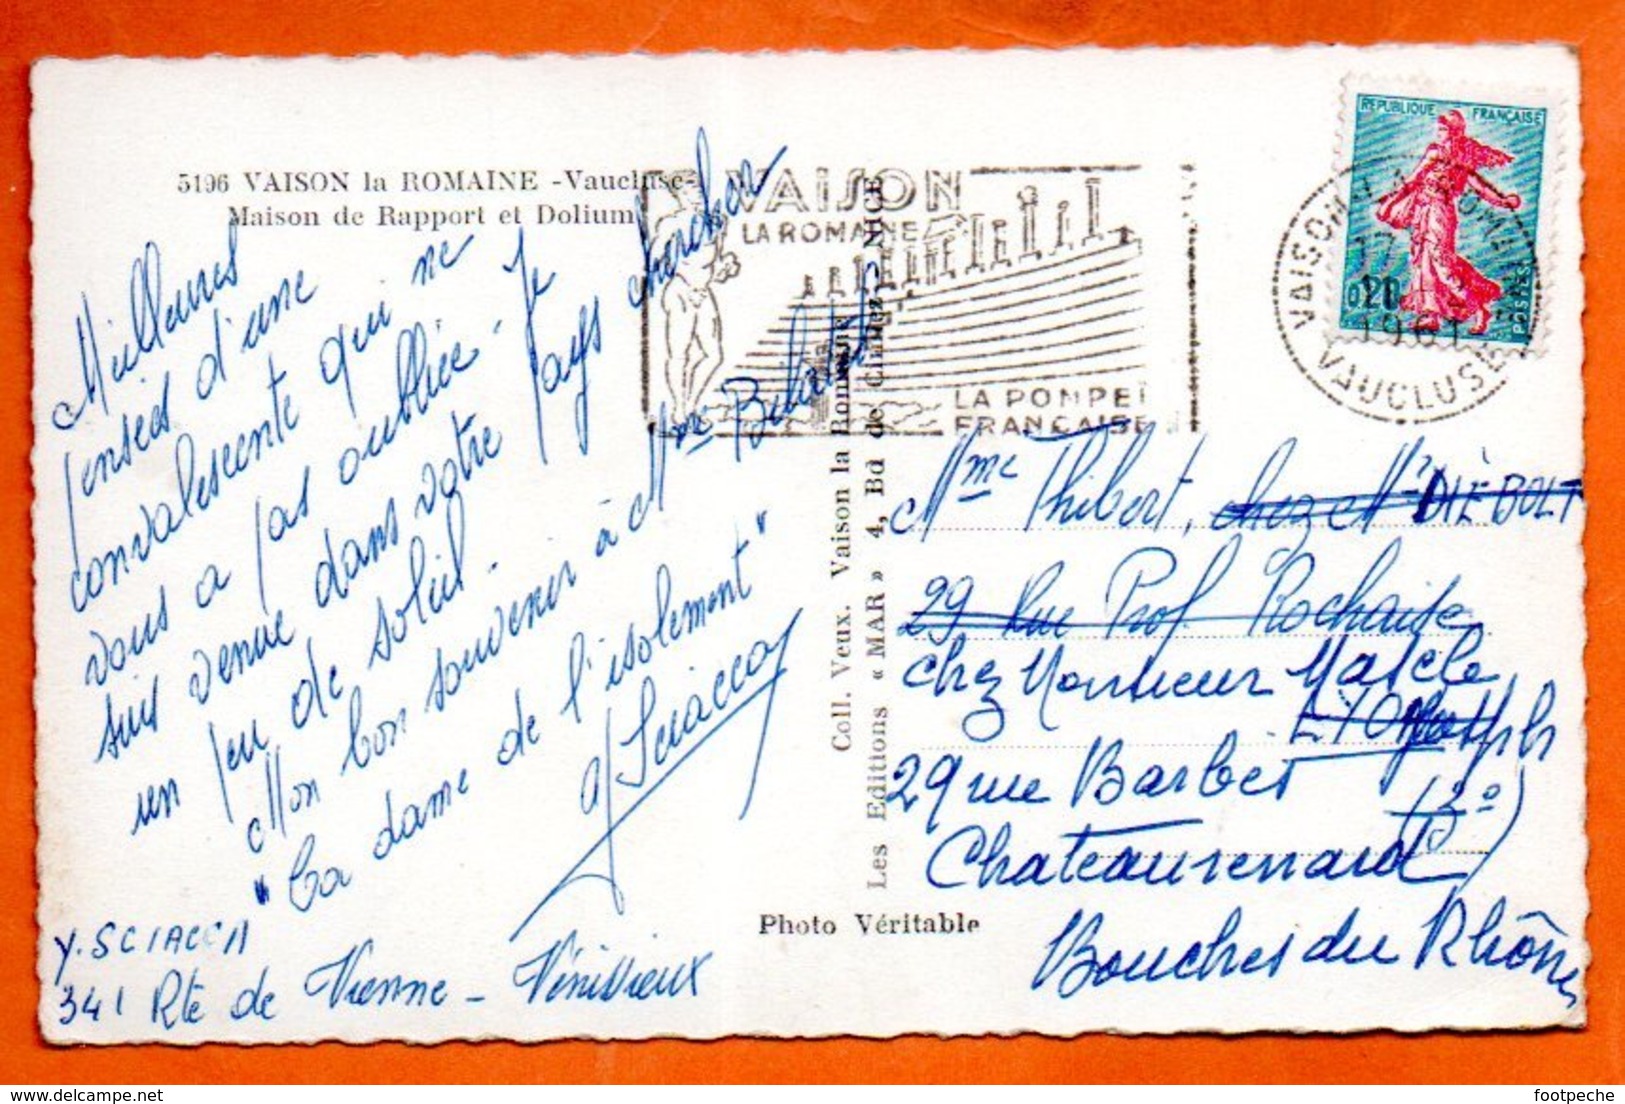 5196 VAISON la ROMAINE -Vaucluse-
Maison de Rapport et Dolium
Meilleures
pensées d'une
convalescente qui ne
vous a pas oubliée. Je
suis venue dans votre pays chercher
un peu de soleil.
Mon bon souvenir à Mme
"La dame de l'isolement"
Y Sciacca
Y. SCIACCA
341 Rte de Vienne - Vénissieux
VAISON
LA ROMAINE
LA POMPEÏ
FRANÇAISE
Coll. Veux. Vaison la Romaine
Les Editions « MAR » 4, Bd de Cimiez - NICE
Photo Véritable
REPUBLIQUE FRANÇAISE
0,20
POSTES
VAISON LA ROMAINE
17
1961
VAUCLUSE
Mme Thibert, chez Mr DIÉBOLT
29 Rue Prof Rochaise
chez Monsieur
LYON
29 rue Barbes
Chateaurenard
Bouches du Rhône
footpeche